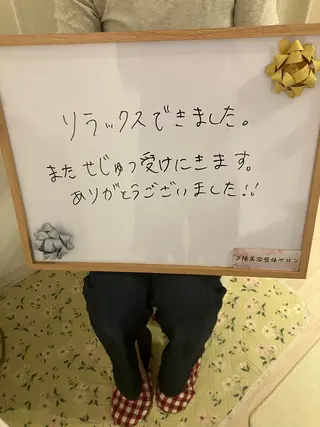 リラックスできました。
また せじゅつ受けにきます。
ありがとうございました!!
夕陽美容整体サロン